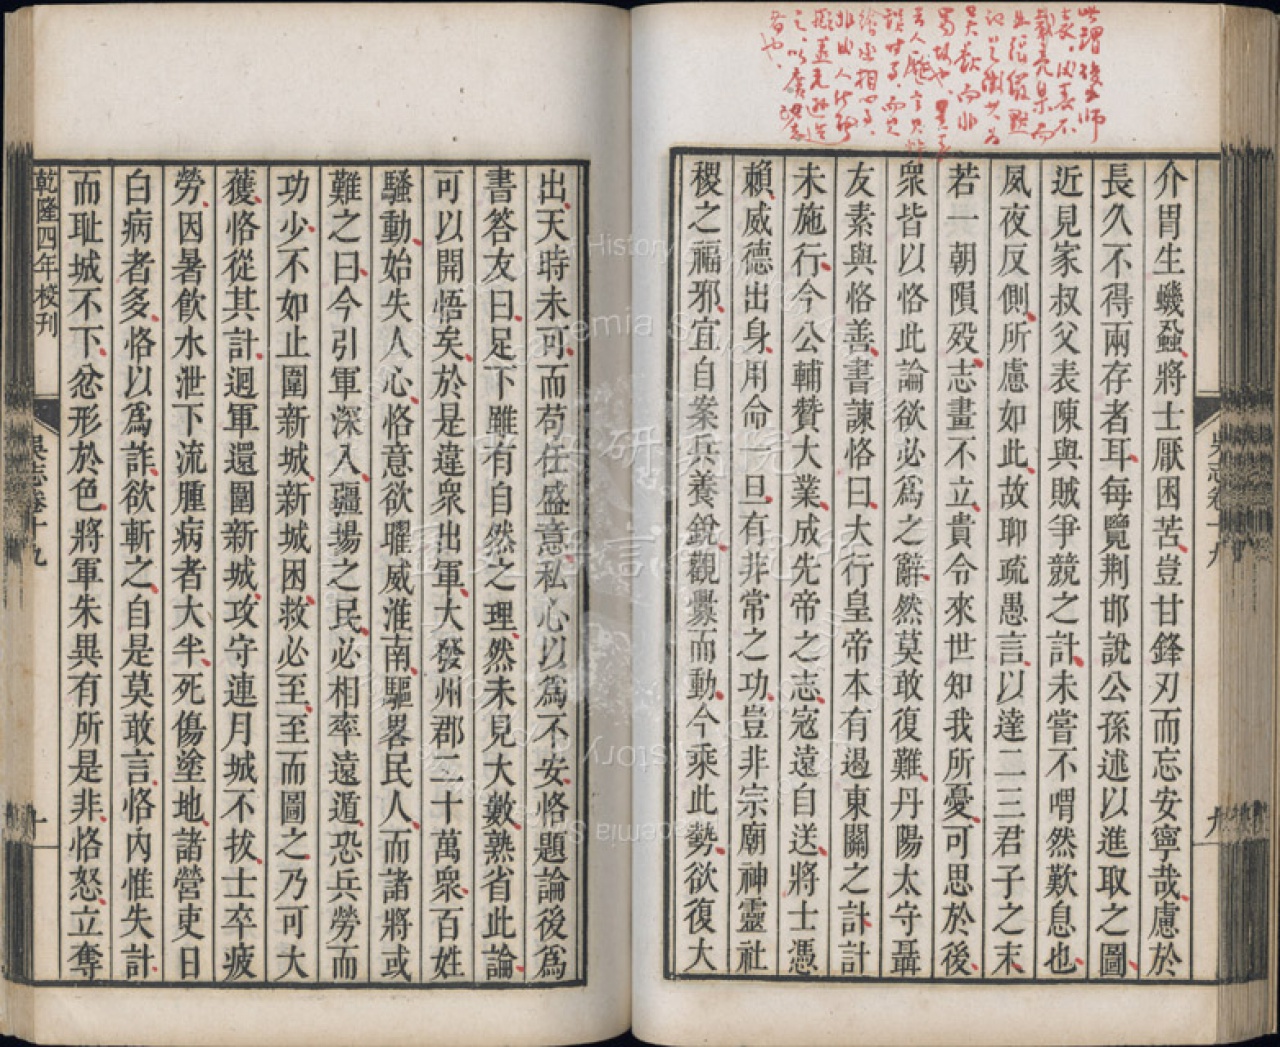 介胄生蟣蝨將士厭困苦豈甘鋒刃而忘安寧哉慮於
長久不得兩存者耳每覽荆邯說公孫述以進取之圖
近見家叔父表陳與賊爭競之計未嘗不喟然歎息也
夙夜反側所慮如此故聊疏愚言以達二三君子之末
若一朝隕歿志畫不立貴令來世知我所憂可思於後
衆皆以恪此論欲必爲之辭然莫敢復難丹陽太守聶
友素與恪善書諫恪曰大行皇帝本有遏東關之計計
未施行今公輔贊大業成先帝之志寇遠自送將士憑
賴威德出身用命一旦有非常之功豈非宗廟神靈社
稷之福邪宜自案兵養銳觀釁而動今乘此勢欲復大
吳志卷十九
九
出天時未可而苟任盛意私心以爲不安恪題論後爲
書答友曰足下雖有自然之理然未見大數熟省此論
可以開悟矣於是違衆出軍大發州郡二十萬衆百姓
騷動始失人心恪意欲曜威淮南驅畧民人而諸將或
難之曰今引軍深入疆場之民必相率遠遁恐兵勞而
功少不如止圍新城新城困救必至至而圖之乃可大
獲恪從其計迴軍還圍新城攻守連月城不拔士卒疲
勞因暑飲水泄下流腫病者大半死傷塗地諸營吏日
白病者多恪以爲詐欲斬之自是莫敢言恪內惟失計
而耻城不下忿形於色將軍朱異有所是非恪怒立奪
乾隆四年校刊
吳志卷十九
十
中央研究院
歷史語言研究所